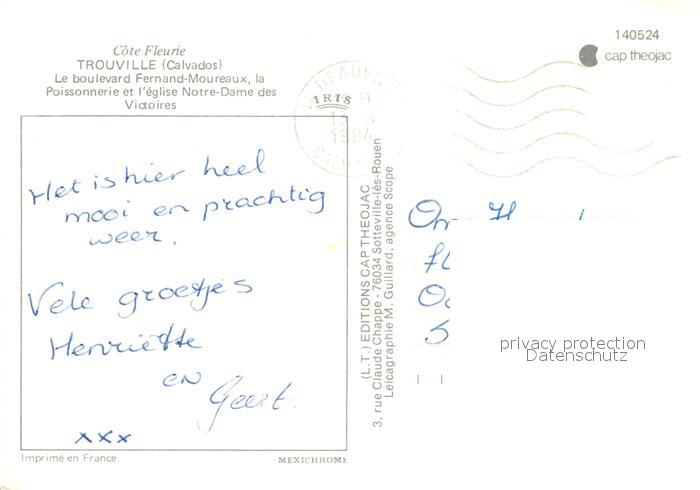 140524
cap theojac
Côte Fleurie
TROUVILLE (Calvados)
Le boulevard Fernand-Moureaux, la
Poissonnerie et l'église Notre-Dame des
Victoires
DEAUVILLE
IRIS
1984
CALVADOS
Het is hier heel
mooi en prachtig
weer.
Vele groetjes
Henriëtte
en
Geert.
xxx
(L.T.) EDITIONS CAP THEOJAC
3, rue Claude Chappe - 76034 Sotteville-lès-Rouen
Leicagraphie M. Guillard, agence Scope
privacy protection
Datenschutz
Imprimé en France
MEXICHROME